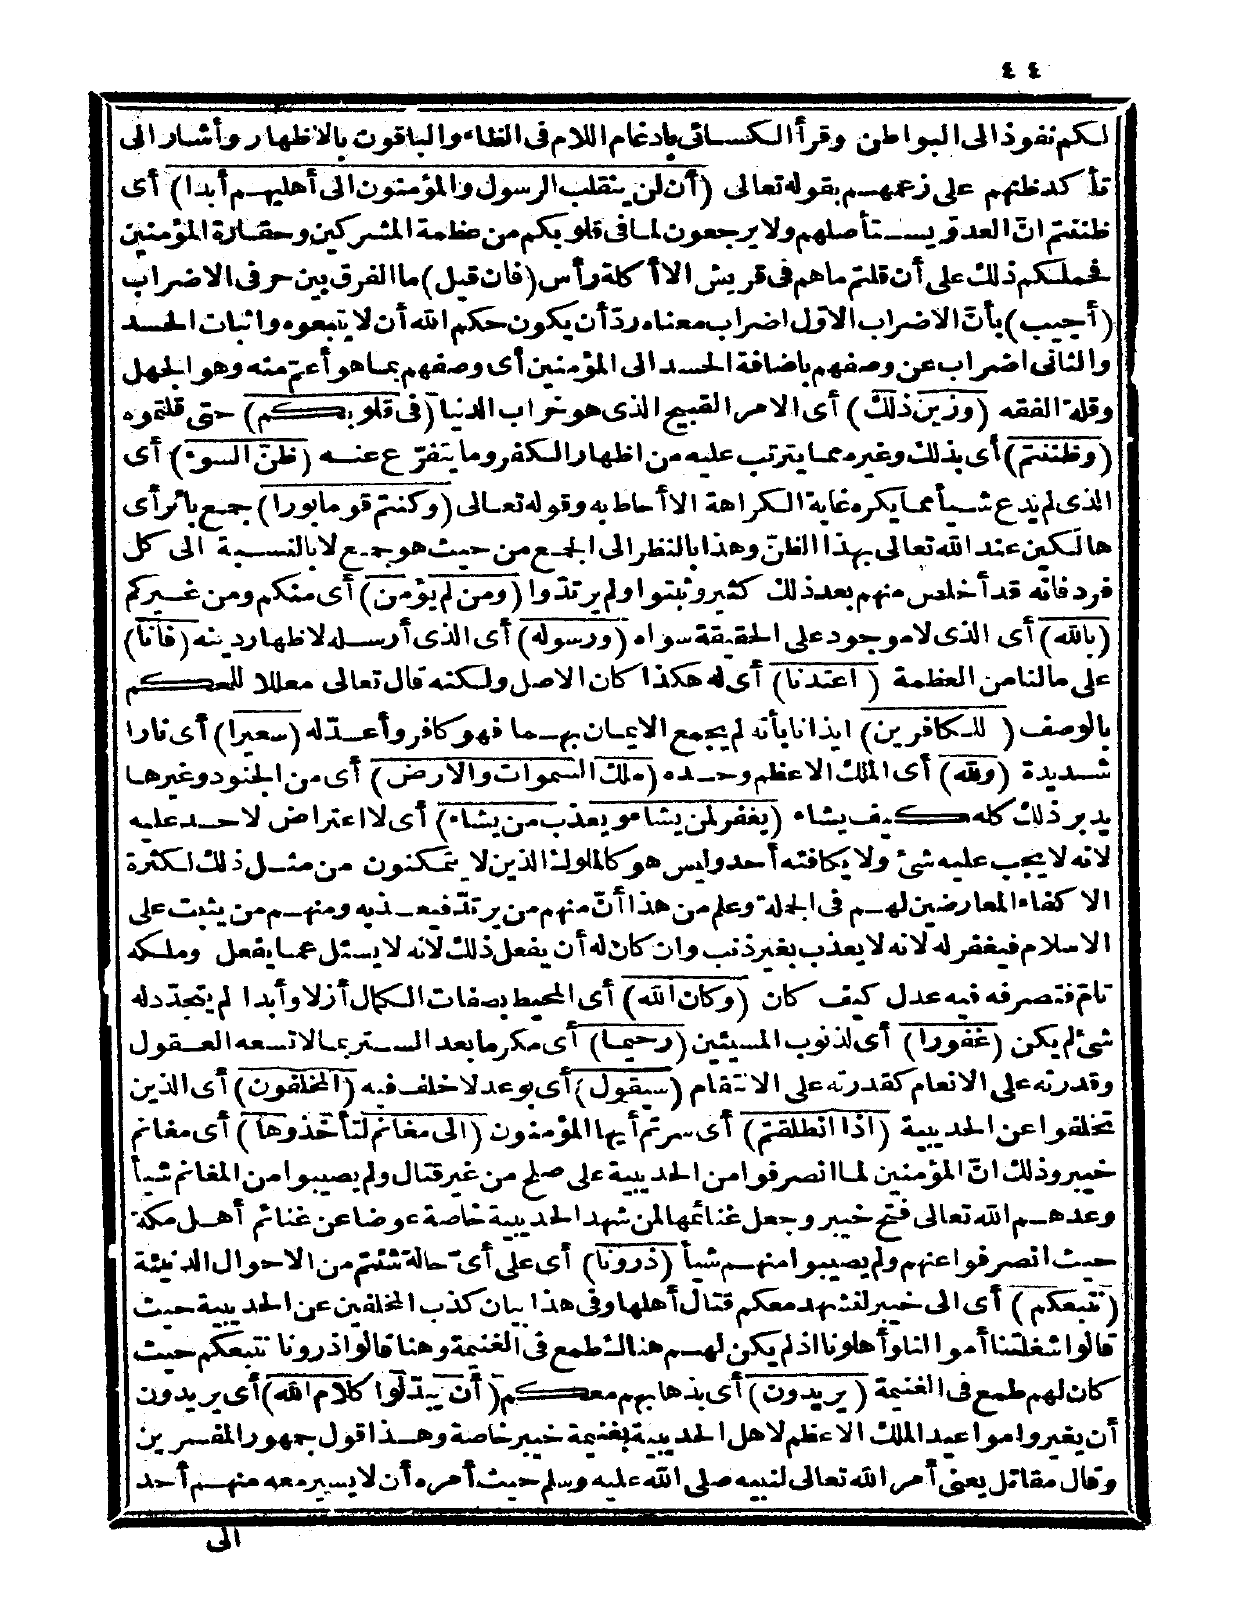 ٤٤
لكم نفوذ الى البواطن وقرأ الكسائى بادغام اللام فى الظاء والباقون بالاظهار وأشار الى
تأكد ظنهم على زعمهم بقوله تعالى (أن لن ينقلب الرسول والمؤمنون الى أهليهم أبدا) أى
ظننتم انّ العدوّ يستأصلهم ولا يرجعون لما فى قلوبكم من عظمة المشركين وحقارة المؤمنين
فحملكم ذلك على أن قلتم ما هم فى قريش الا أكلة رأس (فان قيل) ما الفرق بين حرفى الاضراب
(أجيب) بأنّ الاضراب الاوّل اضراب معناه ردّ أن يكون حكم الله أن لا يتبعوه واثبات الحسد
والثانى اضراب عن وصفهم باضافة الحسد الى المؤمنين أى وصفهم بما هو أعمّ منه وهو الجهل
وقلة الفقه (وزين ذلك) أى الامر القبيح الذى هو خراب الدنيا (فى قلوبكم) حتى قلتموه
(وظننتم) أى بذلك وغيره مما يترتب عليه من اظهار الكفر وما يتفرّع عنه (ظنّ السوء) أى
الذى لم يدع شيأ مما يكره غاية الكراهة الا أحاط به وقوله تعالى (وكنتم قوما بورا) جمع بائر أى
هالكين عند الله تعالى بهذا الظنّ وهذا بالنظر الى الجمع من حيث هو جمع لا بالنسبة الى كل
فرد فانه قد أخلص منهم بعد ذلك كثير وثبتوا ولم يرتدّوا (ومن لم يؤمن) أى منكم ومن غيركم
(بالله) أى الذى لا موجود على الحقيقة سواه (ورسوله) أى الذى أرسله لاظهار دينه (فانا)
على مالنا من العظمة (اعتدنا) أى له هكذا كان الاصل ولكنه قال تعالى معللا للحكم
بالوصف (للكافرين) ايذانا بأنه لم يجمع الايمان بهما فهو كافر وأعدّ له (سعيرا) أى نارا
شديدة (ولله) أى الملك الاعظم وحده (ملك السموات والارض) أى من الجنود وغيرها
يدبر ذلك كله كيف يشاء (يغفر لمن يشاء ويعذب من يشاء) أى لا اعتراض لاحد عليه
لانه لا يجب عليه شئ ولا يكافئه أحد وليس هو كالملوك الذين لا يتمكنون من مثل ذلك لكثرة
الاكفاء المعارضين لهم فى الجملة وعلم من هذا أنّ منهم من يرتدّ فيعذبه ومنهم من يثبت على
الاسلام فيغفر له لانه لا يعذب بغير ذنب وان كان له أن يفعل ذلك لانه لا يسئل عما يفعل وملكه
تامّ فتصرفه فيه عدل كيف كان (وكان الله) أى المحيط بصفات الكمال أزلا وأبدا لم يتجدّد له
شئ لم يكن (غفورا) أى لذنوب المسيئين (رحيما) أى مكرما بعد الستر بما لا تسعه العقول
وقدرته على الانعام كقدرته على الانتقام (سيقول) أى بوعد لا خلف فيه (المخلفون) أى الذين
تخلفوا عن الحديبية (اذا انطلقتم) أى سرتم أيها المؤمنون (الى مغانم لتأخذوها) أى مغانم
خيبر وذلك انّ المؤمنين لما انصرفوا من الحديبية على صلح من غير قتال ولم يصيبوا من المغانم شيأ
وعدهم الله تعالى فتح خيبر وجعل غنائمها لمن شهد الحديبية خاصة عوضا عن غنائم أهل مكة
حيث انصرفوا عنهم ولم يصيبوا منهم شيأ (ذرونا) أى على أىّ حالة شئتم من الاحوال الدنيئة
(نتبعكم) أى الى خيبر لنشهد معكم قتال أهلها وفى هذا بيان كذب المخلفين عن الحديبية حيث
قالوا شغلتنا أموالنا وأهلونا اذ لم يكن لهم هناك طمع فى الغنيمة وهنا قالوا ذرونا نتبعكم حيث
كان لهم طمع فى الغنيمة (يريدون) أى بذهابهم معكم (أن يبدّلوا كلام الله) أى يريدون
أن يغيروا مواعيد الملك الاعظم لاهل الحديبية بغنيمة خيبر خاصة وهذا قول جمهور المفسرين
وقال مقاتل يعنى أمر الله تعالى لنبيه صلى الله عليه وسلم حيث أمره أن لا يسير معه منهم أحد
الى